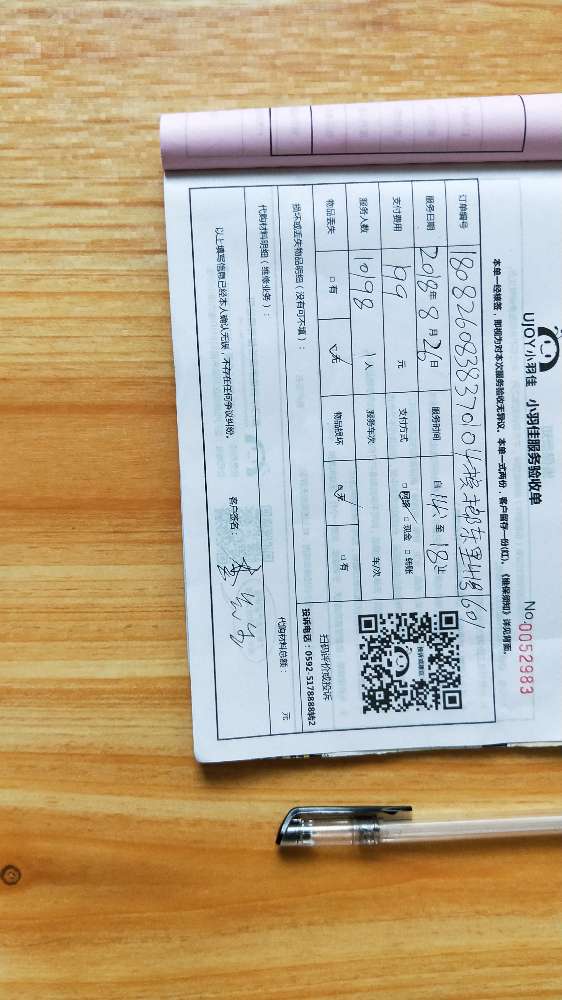 UJOY小羽佳 小羽佳服务验收单
No.0052983
本单一经接签，即视为对本次服务验收无异议。本单一式两份，客户留存一份(红)。《维保须知》详见背面。
订单编号 1808260838370104 槟榔东里411号601
服务日期 2018年8月26日 服务时间 自14:00至18:00
支付费用 199 元 支付方式 □网络 □现金 □转账
服务人数 10198 1人 服务车次 车/次
物品丢失 □有 □无 物品损坏 □无 □有
扫码评价或投诉
投诉电话：0592-5178888转2
损坏或丢失物品明细（没有可不填）：
代购材料明细（维修业务）：
代购材料总额： 元
以上填写信息已经本人确认无误，不存在任何争议纠纷。 客户签名：